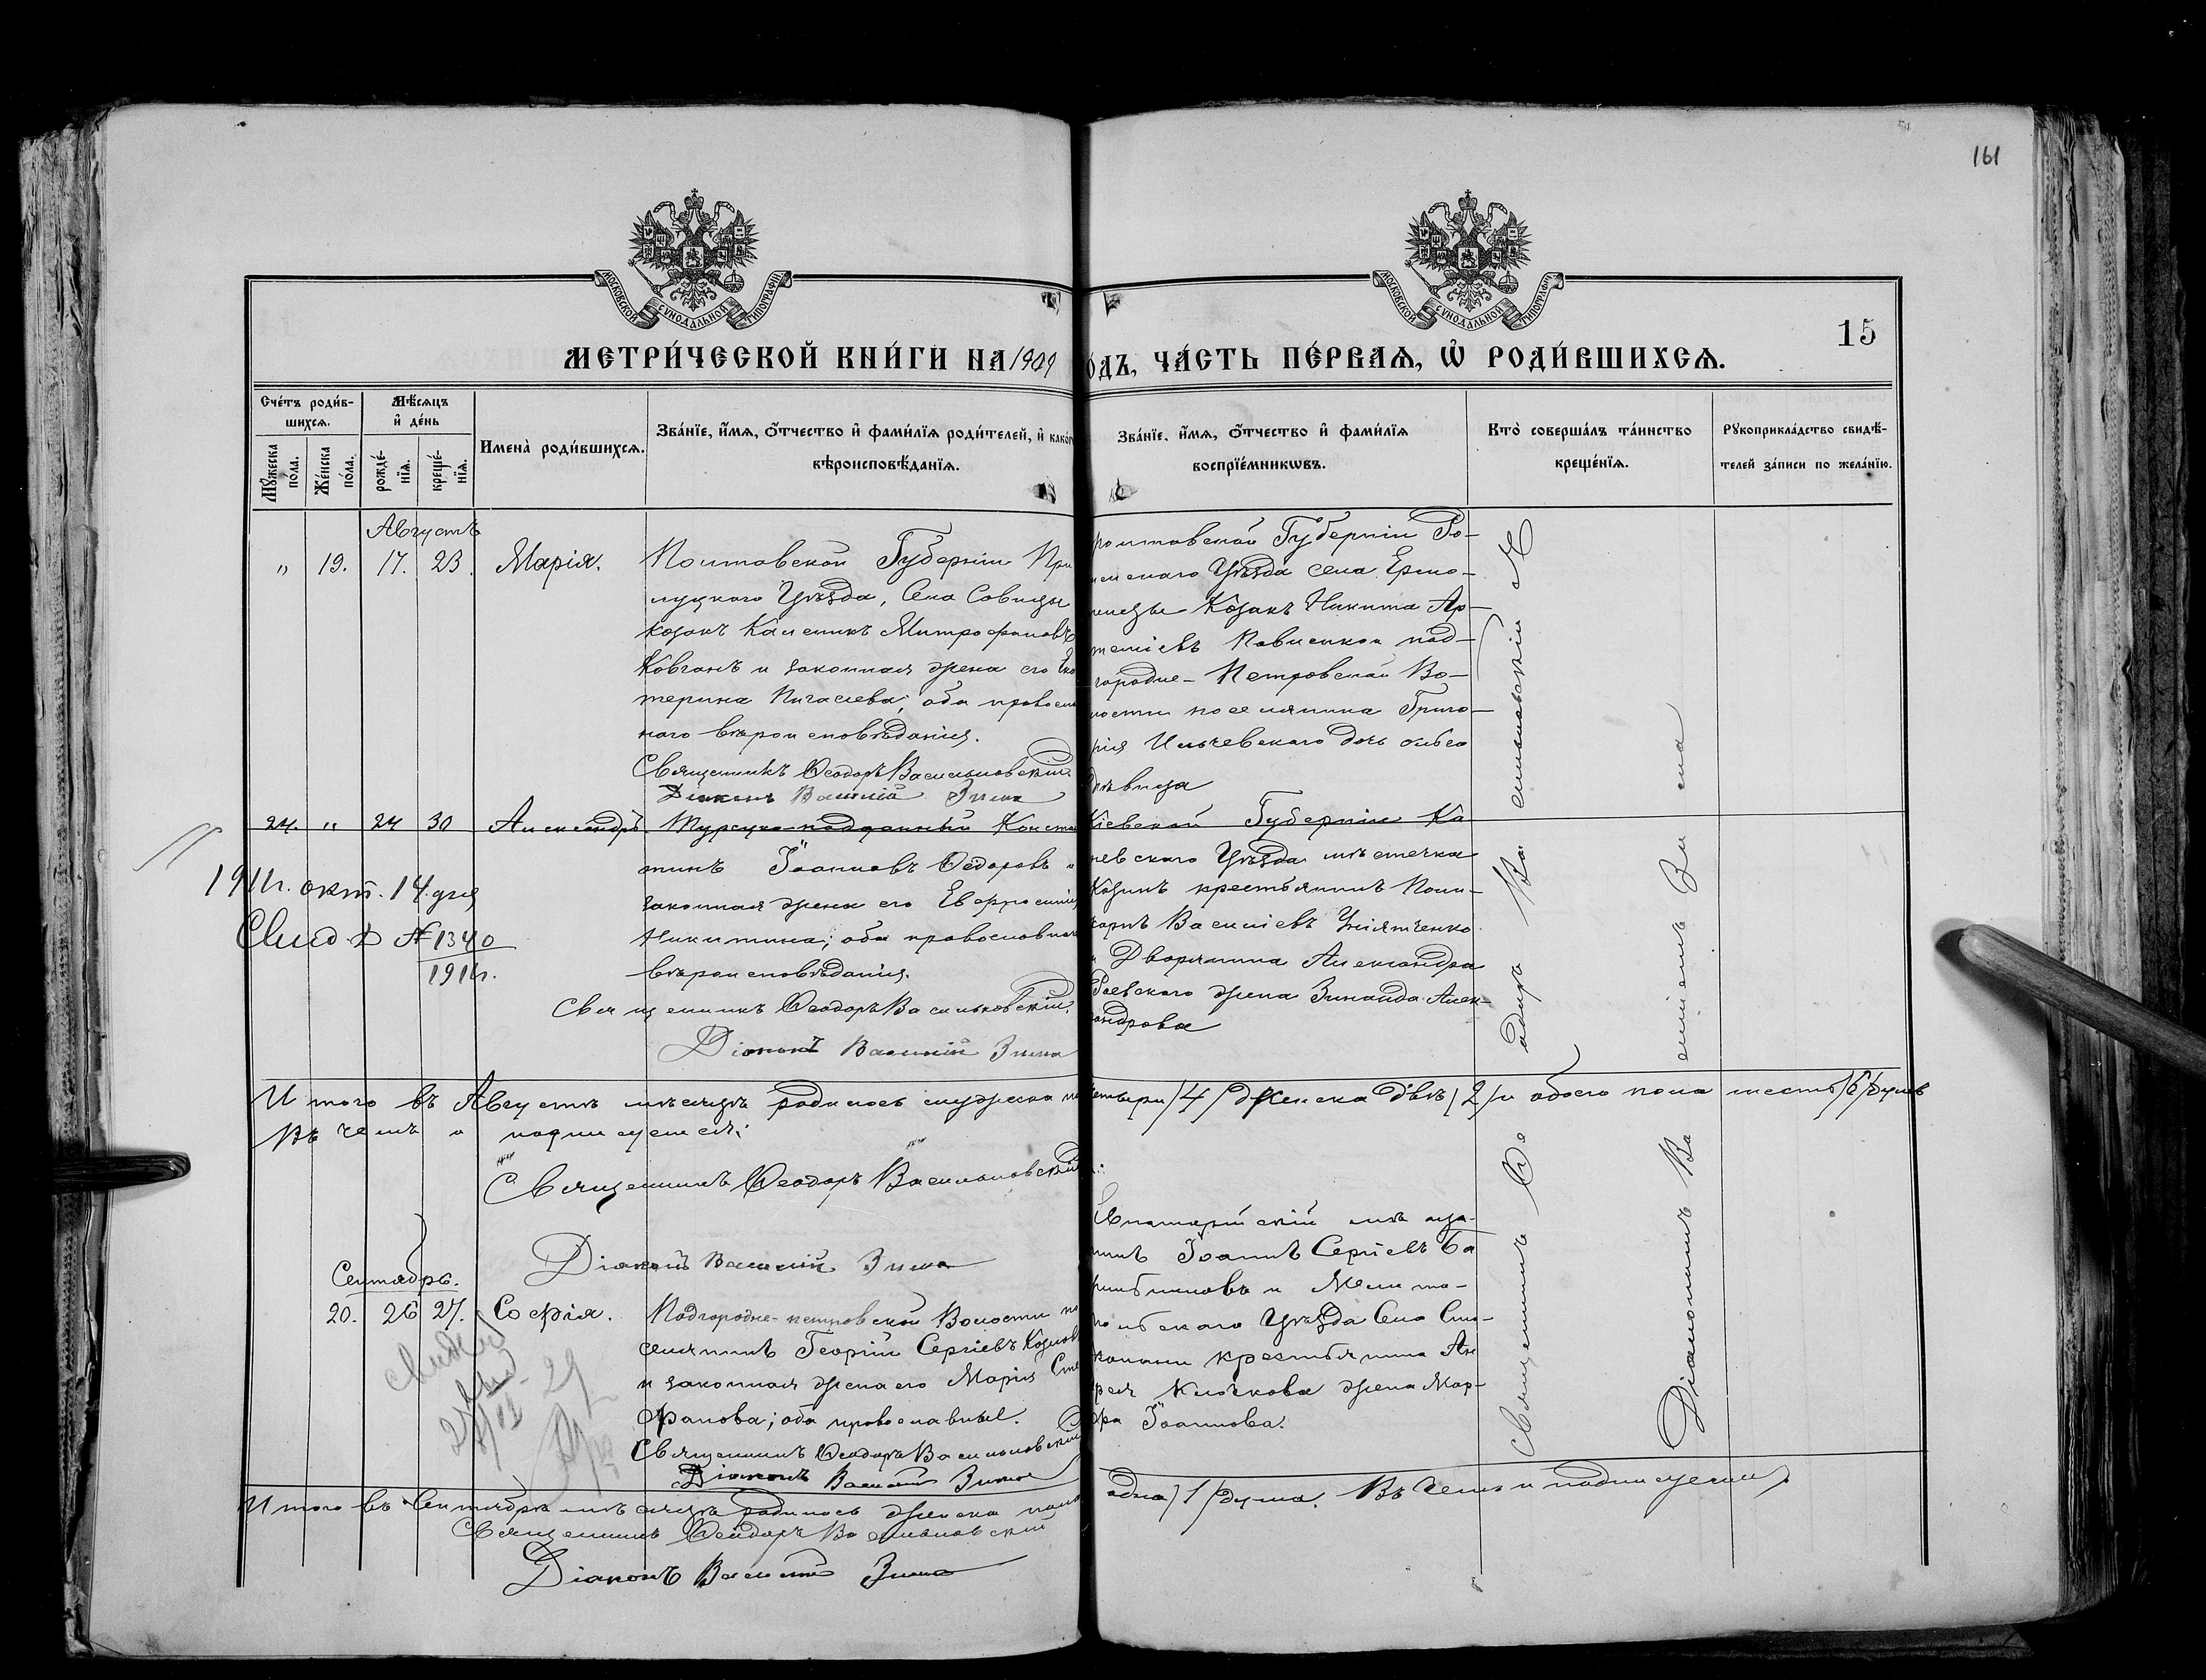 161
МОСКОВСКОЙ СѴНОДАЛЬНОЙ ТИПОГРАФІИ
МОСКОВСКОЙ СѴНОДАЛЬНОЙ ТИПОГРАФІИ
15
МЕТРИ́ЧЕСКОЙ КНИ́ГИ НА 1909
ОДЪ, ЧА́СТЬ ПЕ́РВАѦ, Ѡ҆ РОДИ́ВШИХСѦ.
Сче́тъ роди́в-
шихсѧ.
Мѣ́сѧцъ
и҆ де́нь
Мꙋ́жеска
по́ла.
Же́нска
по́ла.
рожде́-
нїѧ.
креще́-
нїѧ.
Имена̀ роди́вшихсѧ.
Зва́нїе, и҆́мѧ, ѻ҆́тчество и҆ фами́лїѧ роди́телей, и҆ како́г
вѣроисповѣ́данїѧ.
Зва́нїе, и҆́мѧ, ѻ҆́тчество и҆ фами́лїѧ
воспрїе́мникѡвъ.
Кто̀ соверша́лъ та́инство
креще́нїѧ.
Рꙋкоприкла́дство свидѣ́-
телей за́писи по жела́нїю.
Августъ
" 19. 17. 23. Марія.
Полтавской Губерніи При
луцкого Уѣзда, Села Савицы
козакъ Каленикъ Митрофановъ
Ковганъ и законная жена его Ека
терина Пигасіева; оба православ
наго вѣроисповѣданія.
Священникъ Ѳеодоръ Васильковскій
Діаконъ Василій Зима
Полтавской Губерніи Ро-
менскаго Уѣзда села
Козакъ Никита Ар-
теміевъ и под-
городне-Петровской Во-
лости поселянина Григо-
рія Ильчевского дочь
дѣвица
24. " 24 30 Александръ.
Турецко-подданный Конста
тинъ Іоанновъ Ѳедоровъ и
законная жена его Евфросинія
Никитина; оба православнаго
вѣроисповѣданія.
Священникъ Ѳеодоръ Васильковскій.
Діаконъ Василій Зима
Кіевской Губерніи Ка
невскаго Уѣзда мѣстечка
Козинъ крестьянинъ Поли-
карпъ Василіевъ
и Дворянина Александра
Раевского жена Зинаида Алек-
сандрова
1911г. окт. 14 дня
Свид № 1340
1911г.
Итого въ Августѣ мѣсяцѣ родилось мужеска по
четыри /4/ женска двѣ /2/ и обоего пола шесть /6/ душъ
Въ чемъ и подписуемся:
Священникъ Ѳеодоръ Васильковскій
Діаконъ Василій Зима
Сентябрь.
20. 26 27. Софія.
Подгородне-петровской Волости по
селянинъ Георгій Сергіевъ Козлов
и законная жена его Марія Сте
фанова; оба православные.
Священникъ Ѳеодоръ Васильковскій
Діаконъ Василій Зима
Евпаторійскій мѣща-
нинъ Іоаннъ Сергіевъ Ба
и Мелито-
польскаго Уѣзда Села
крестьянина Ан
рея Клочкова жена Мар-
фа Іоаннова.
Священникъ Ѳеодоръ Васильковскій
Діаконъ Василій Зима
Итого въ Сентябрѣ мѣсяцѣ родилось женска пола
одна /1/ душа. Въ чемъ и подписуемся
Священникъ Ѳеодоръ Васильковскій
Діаконъ Василій Зима